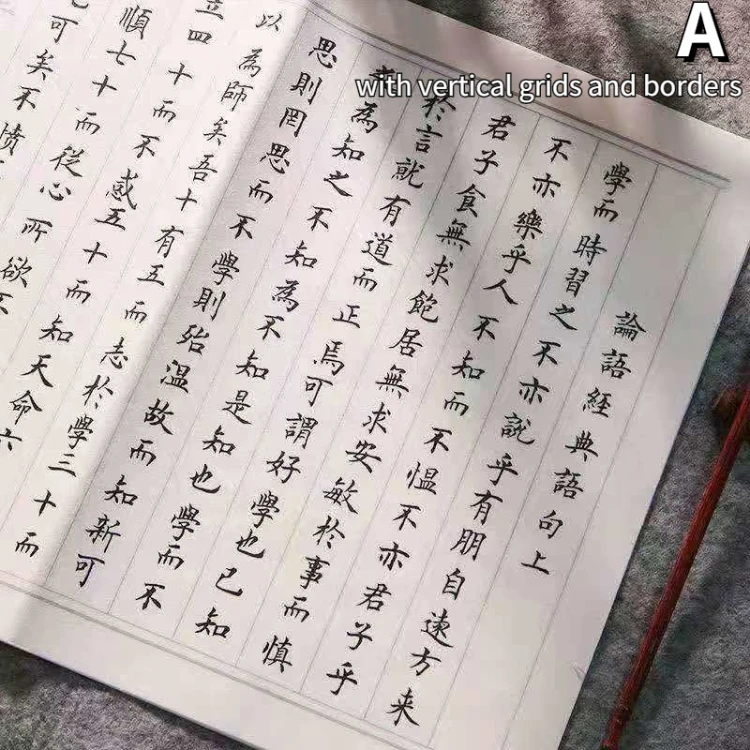 A
with vertical grids and borders
論語經典語向上
學而時習之不亦説乎有朋自遠方来
不亦樂乎人不知而不愠不亦君子乎
君子食無求飽居無求安敏於事而慎
於言就有道而正焉可謂好學也已知
為知之不知為不知是知也學而不
思則罔思而不學則殆温故而知新可
以為師矣吾十有五而志於學三十而
立四十而不惑五十而知天命六
順七十而從心所欲不
可矣不憤